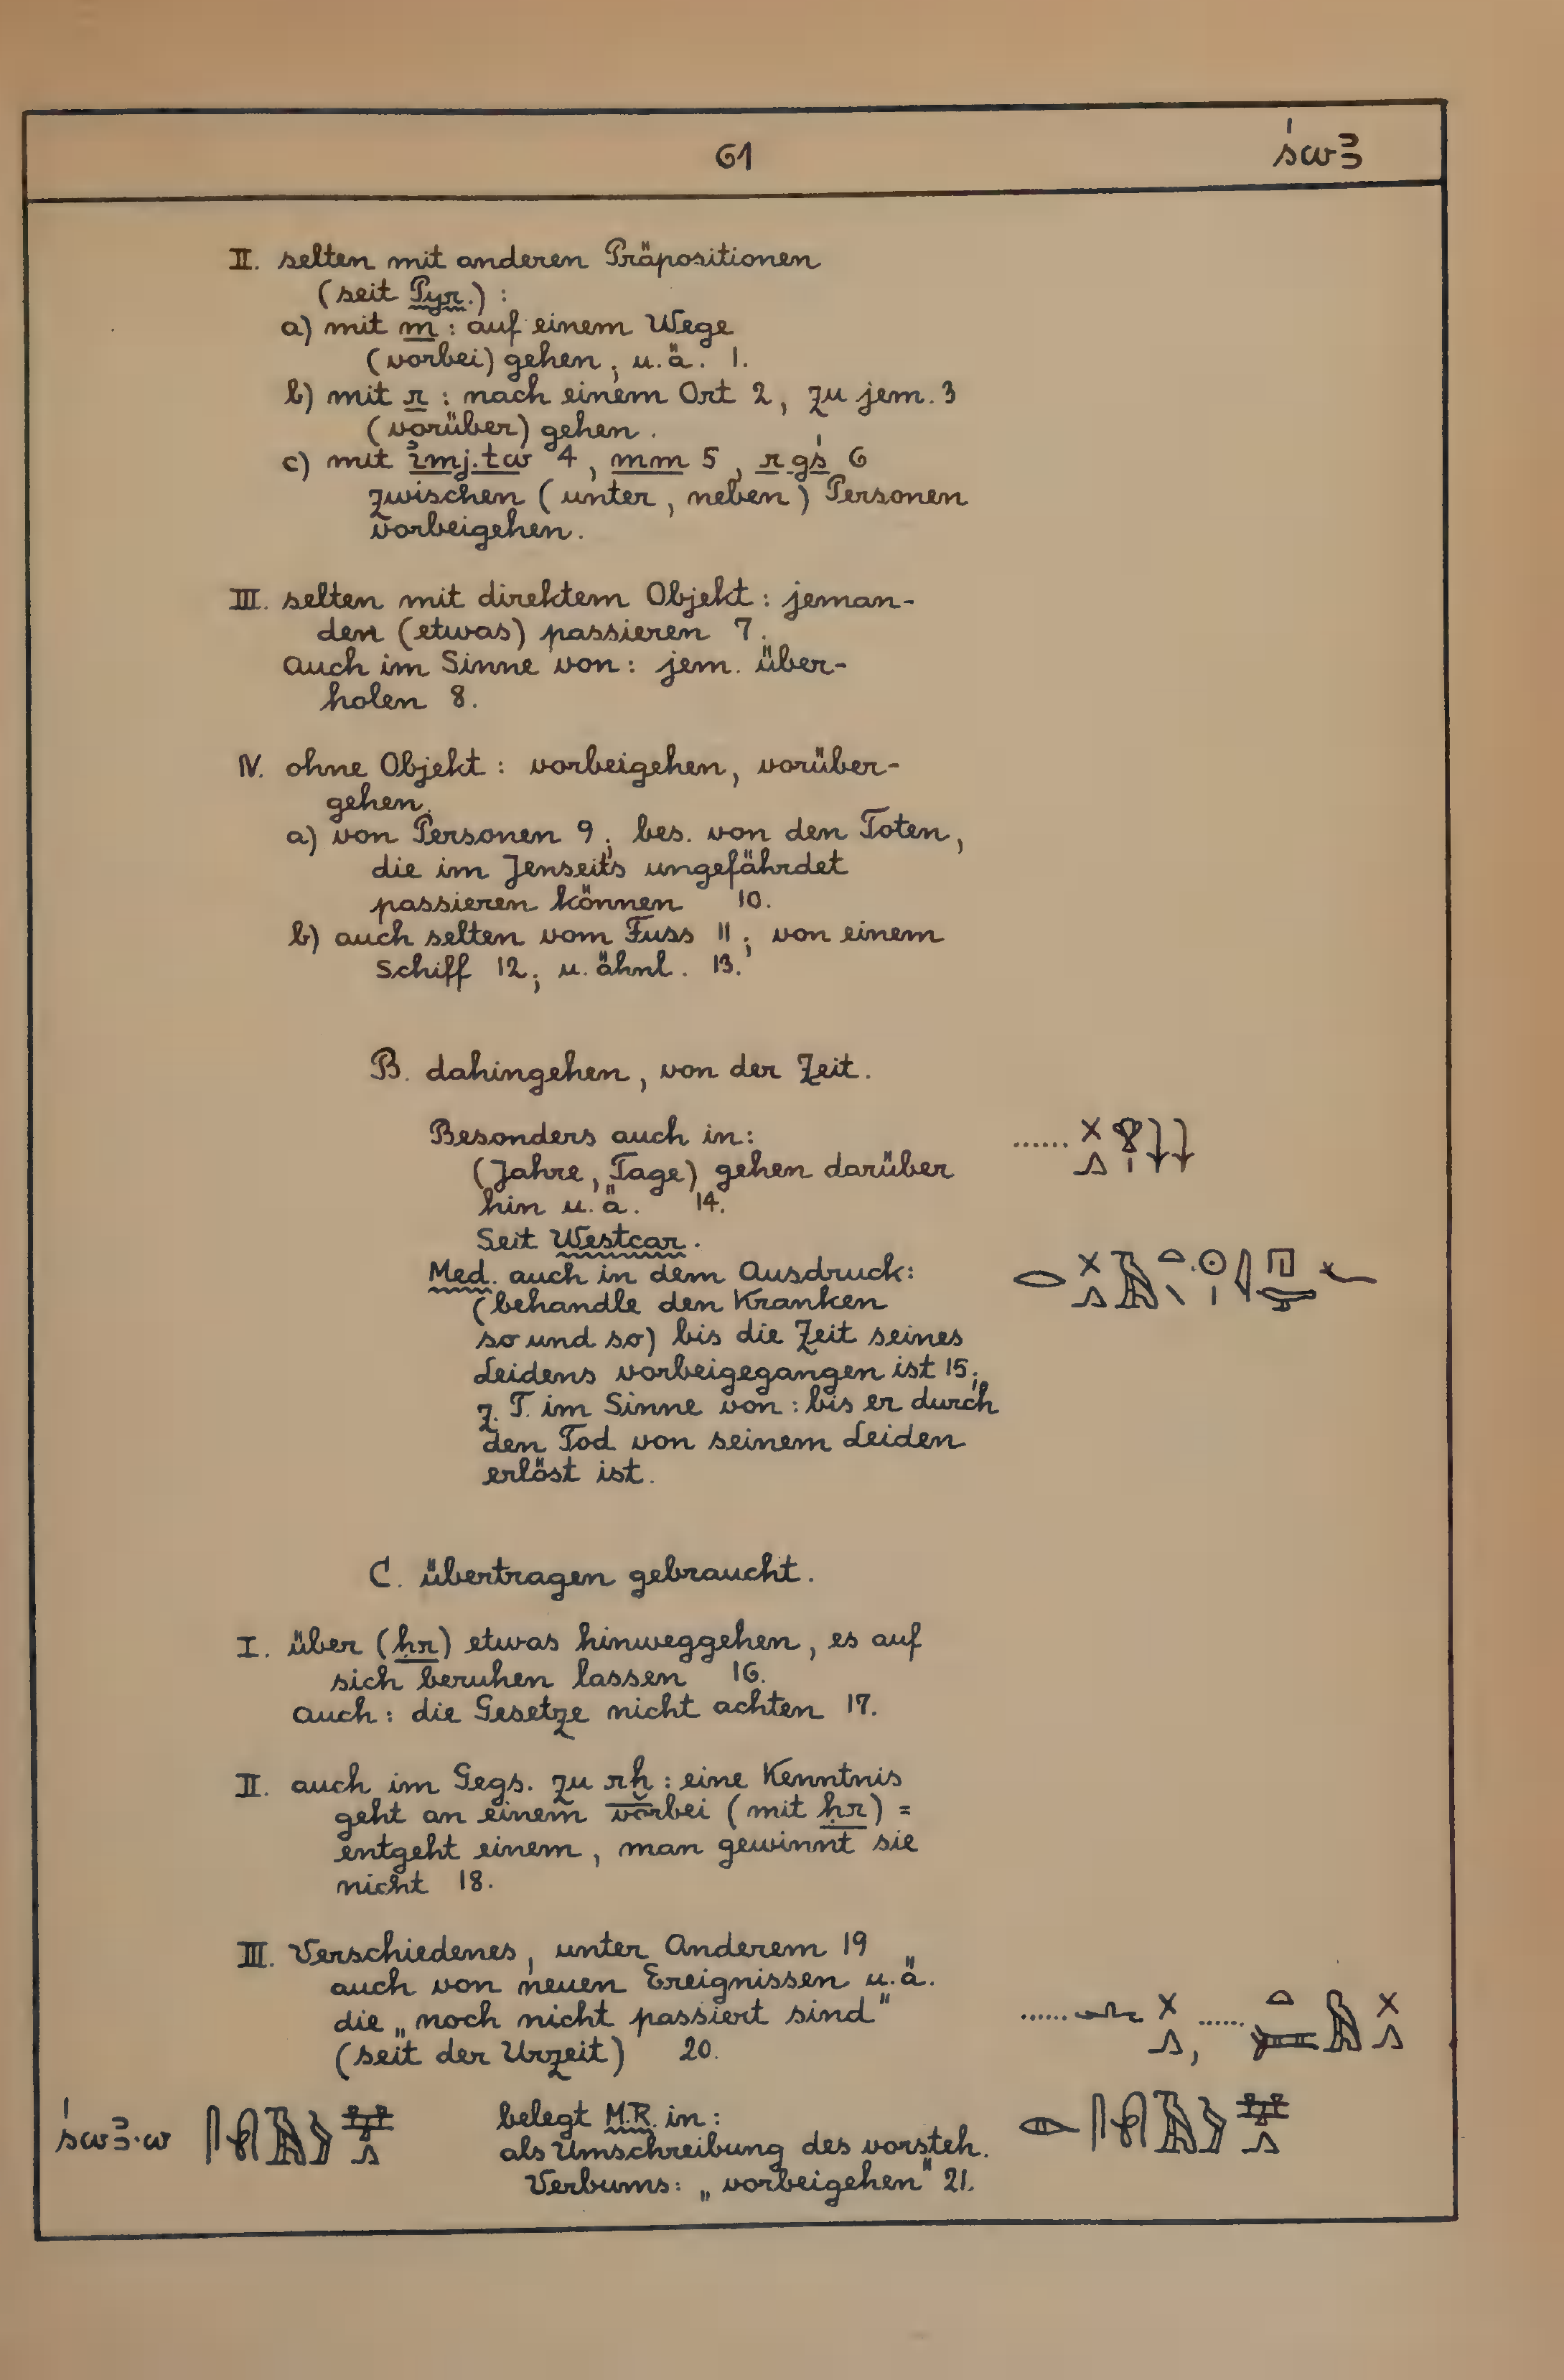 61
św3
II. selten mit anderen Präpositionen
(seit Pyr.):
a) mit m: auf einem Wege
(vorbei) gehen; u.ä. 1.
b) mit r: nach einem Ort 2, zu jem. 3
(vorüber) gehen.
c) mit ꞽmj.tw 4, mm 5, r gś 6
zwischen (unter, neben) Personen
vorbeigehen.
III. selten mit direktem Objekt: jeman-
den (etwas) passieren 7.
Auch im Sinne von: jem. über-
holen 8.
IV. ohne Objekt: vorbeigehen, vorüber-
gehen.
a) von Personen 9; bes. von den Toten,
die im Jenseits ungefährdet
passieren können 10.
b) auch selten vom Fuss 11; von einem
Schiff 12; u. ähnl. 13.
B. dahingehen, von der Zeit.
Besonders auch in:
(Jahre, Tage) gehen darüber
hin u.ä. 14.
Seit Westcar.
Med. auch in dem Ausdruck:
(behandle den Kranken
so und so) bis die Zeit seines
Leidens vorbeigegangen ist 15;
z. T. im Sinne von: bis er durch
den Tod von seinem Leiden
erlöst ist.
C. übertragen gebraucht.
I. über (ḥr) etwas hinweggehen, es auf
sich beruhen lassen 16.
Auch: die Gesetze nicht achten 17.
II. auch im Gegs. zu rḫ: eine Kenntnis
geht an einem vorbei (mit ḥr) =
entgeht einem, man gewinnt sie
nicht 18.
III. Verschiedenes, unter Anderem 19
auch von neuen Ereignissen u.ä.
die „noch nicht passiert sind"
(seit der Urzeit) 20.
św3.w
belegt M.R. in:
als Umschreibung des vorsteh.
Verbums: „vorbeigehen" 21.